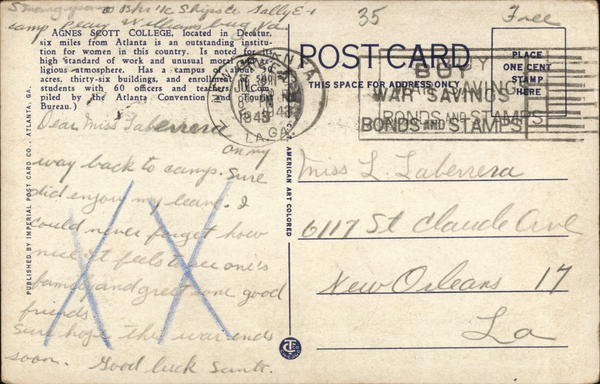 35
Free
Camp Peary Williamsburg Va
AGNES SCOTT COLLEGE, located in Decatur,
six miles from Atlanta is an outstanding institu-
tion for women in this country. Is noted for its
high standard of work and unusual moral and re-
ligious atmosphere. Has a campus of about 50
acres, thirty-six buildings, and enrollment of 500
students with 60 officers and teachers. (Com-
piled by the Atlanta Convention and Tourist
Bureau.)
POST CARD
THIS SPACE FOR ADDRESS ONLY
PLACE
ONE CENT
STAMP
HERE
ATLANTA
1943
GA.
BUY
WAR SAVINGS
BONDS AND STAMPS
Dear Miss Taberrera
on my
way back to camp. Sure
did enjoy my leave. I
could never forget how
nice it feels to see one's
family and great some good
friends.
Sure hope this war ends
soon. Good luck Santo.
Miss L. Laberrera
6117 St Claude Ave
New Orleans 17
La
PUBLISHED BY IMPERIAL POST CARD CO., ATLANTA, GA.
AMERICAN ART COLORED